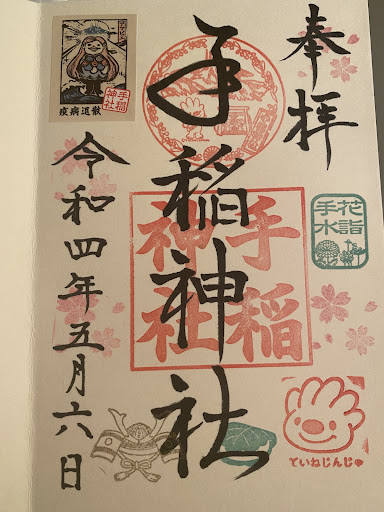 奉拝
手稲神社
手稲
神社
花詣
手水
ていねじんじゃ
令和四年五月六日
手稲
神社
疫病退散